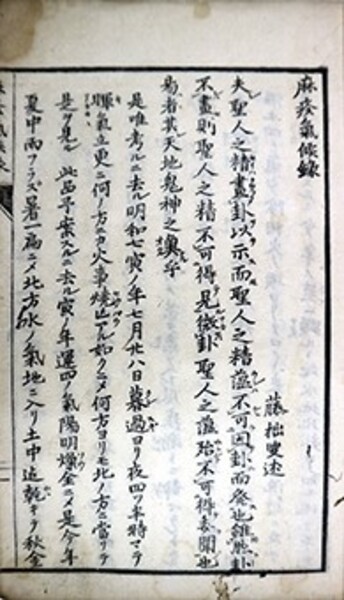 麻疹氣候録
藤拙叟述
夫聖人之精畫卦以示而聖人之精蘊不可因卦而発也雖然卦
不畫則聖人之精不可得見微卦聖人之蘊殆不可得悉聞也
易者其天地鬼神之奧乎
是唯考ルニ去ル明和七寅ノ年七月廿八日暮過ヨリ夜四ツ半時マテ
輝氣立更ニ何ノ方ニカ火事焼亡アル如クニメ何方ヨリモ北ノ方ニ當リテ
是ヲ見ル 此昌予案スルニ去ル寅ノ年運四ノ氣陽明燥金ニメ是今年
夏中雨フラズ暑一扁ニメ北方水ノ氣地ニ入リ土中迠乾キテ秋金